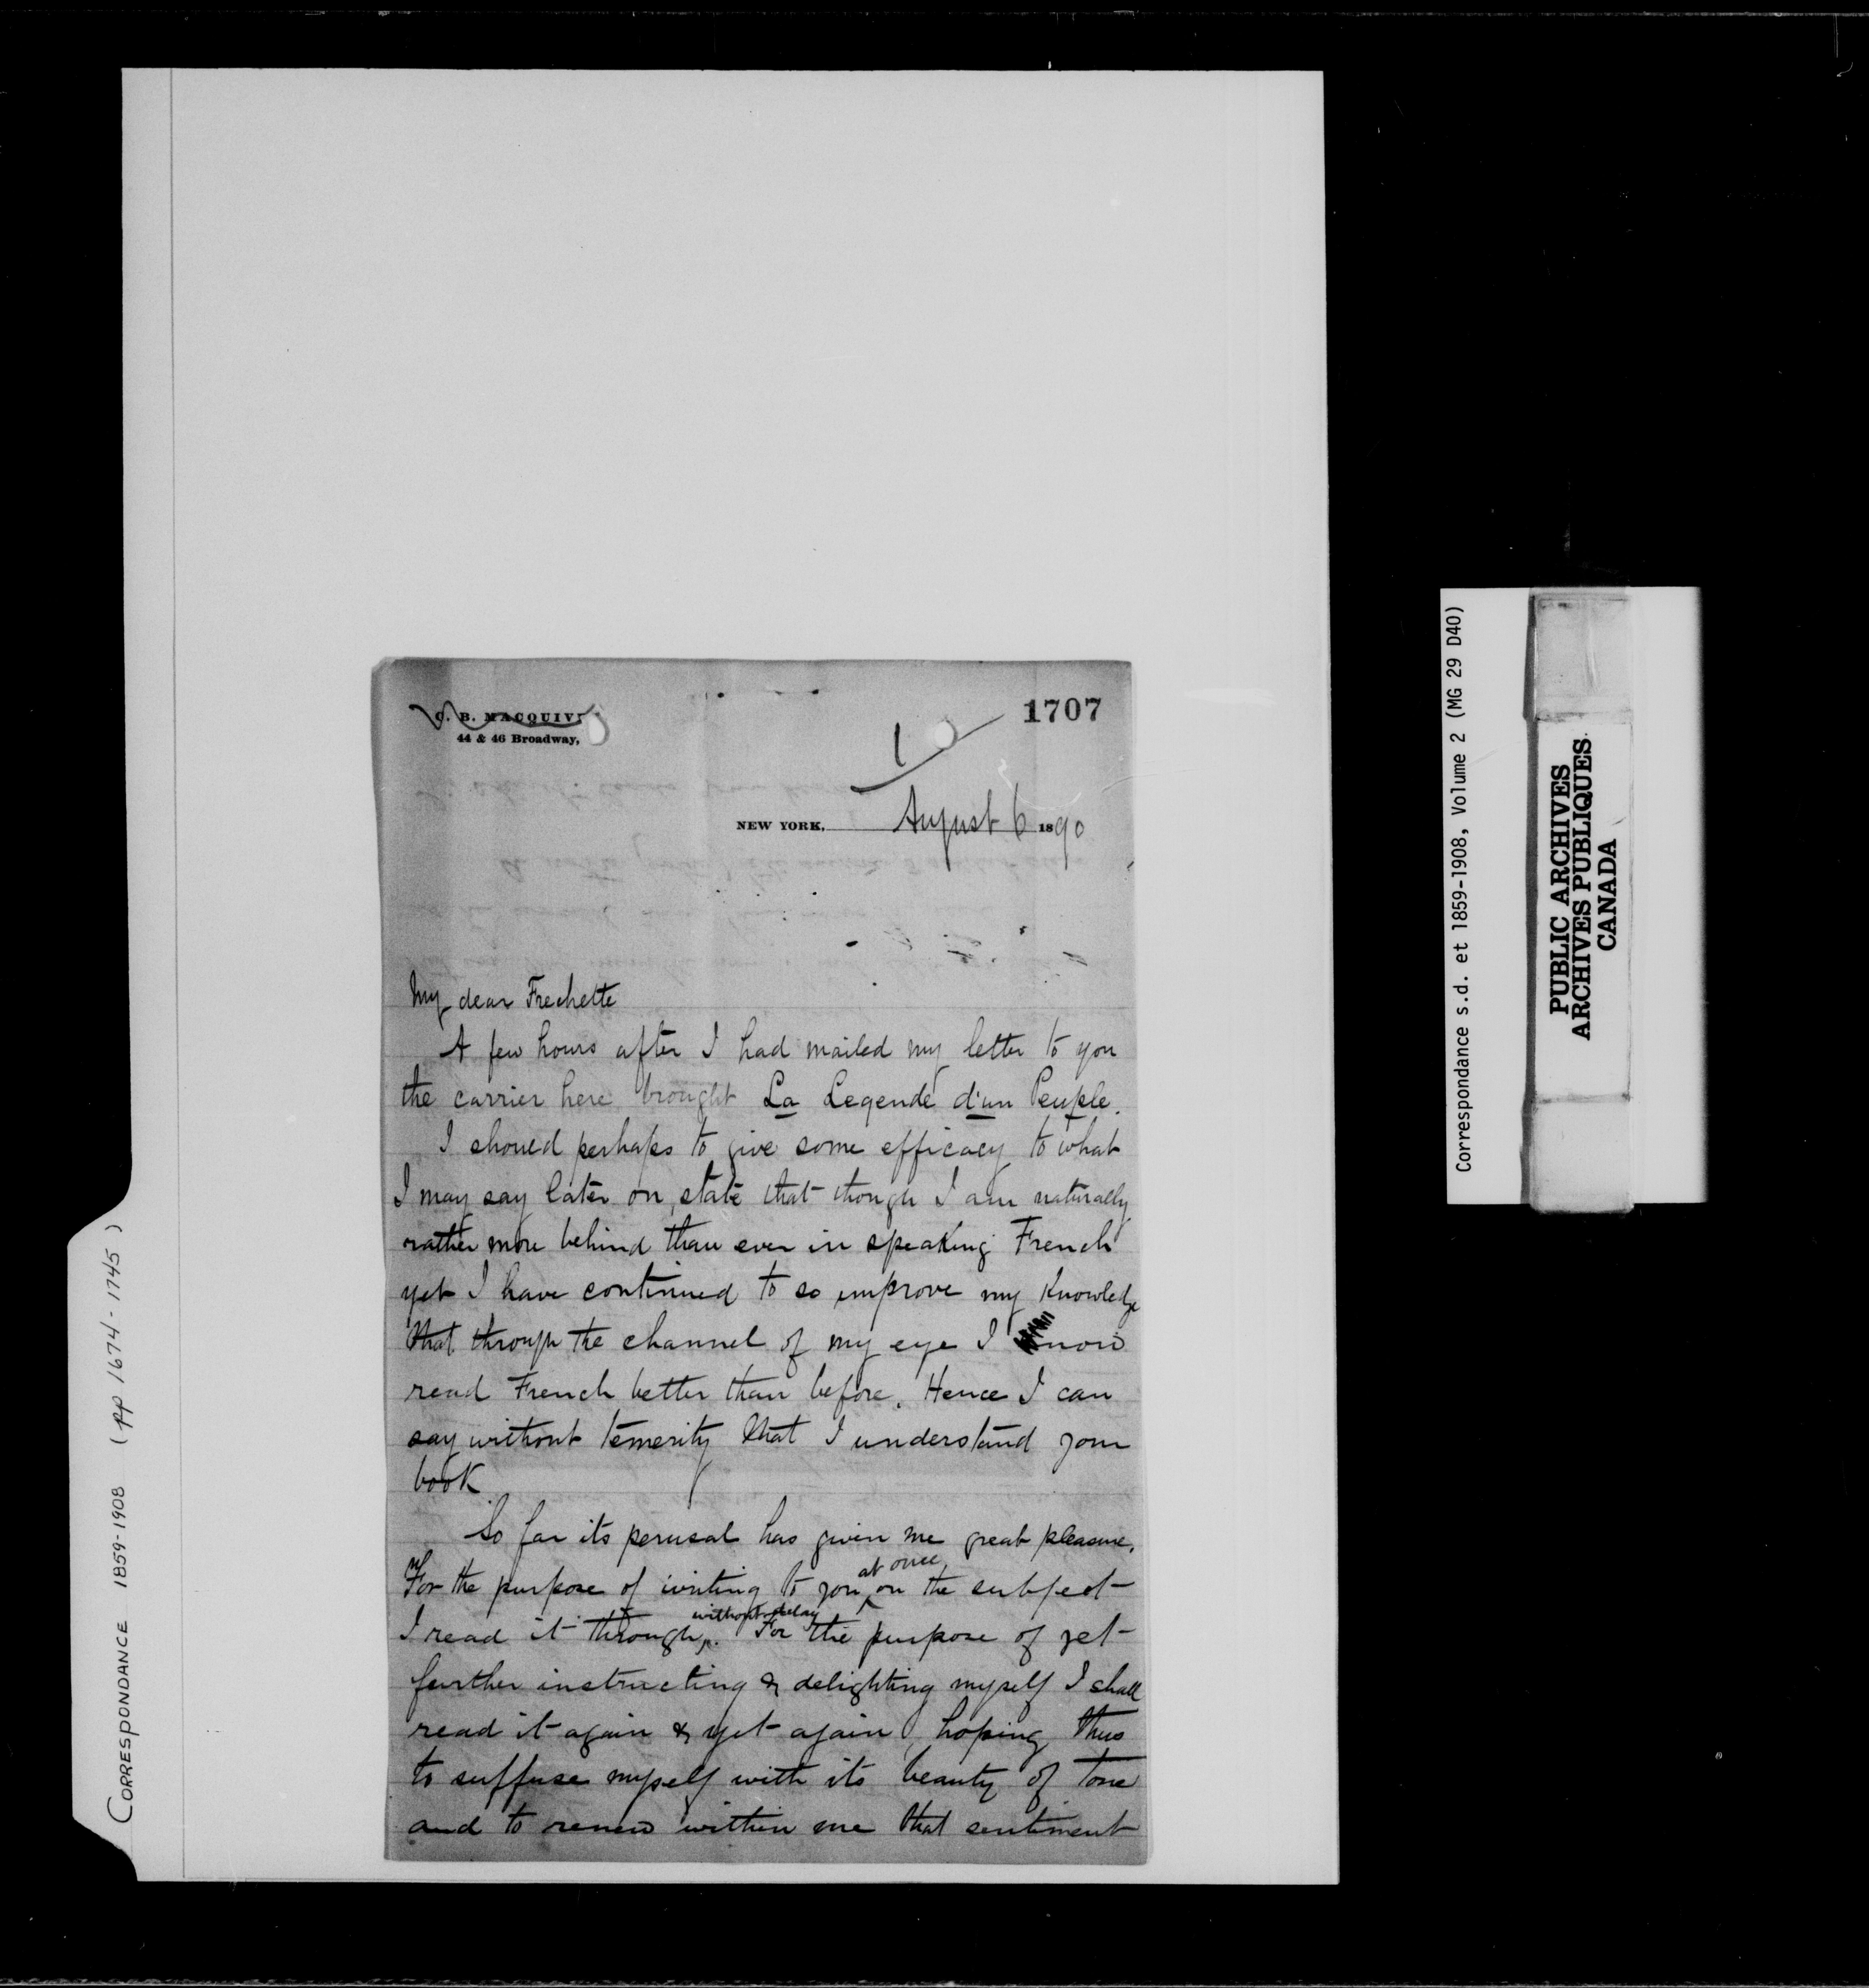 1707
44 & 46 Broadway,
1
NEW YORK, August 6 1890
My dear Frechette
A few hours after I had mailed my letter to you
the carrier here brought La Legende d'un Peuple.
I should perhaps to give some efficacy to what
I may say later on, state that though I am naturally
rather more behind than ever in speaking French
yet I have continued to so improve my knowledge
that through the channel of my eye I now
read French better than before. Hence I can
say without temerity that I understand your
book
So far its perusal has given me great pleasure.
For the purpose of writing to you at once on the subject
I read it through without delay. For the purpose of yet
further instructing & delighting myself I shall
read it again & yet again, hoping thus
to suffuse myself with its beauty of tone
and to renew within me that sentiment
CORRESPONDANCE 1859-1908 (pp 1674-1745)
Correspondance s.d. et 1859-1908, Volume 2 (MG 29 D40)
PUBLIC ARCHIVES
ARCHIVES PUBLIQUES
CANADA